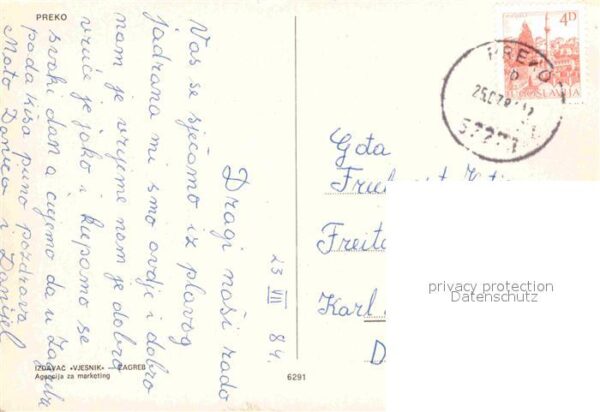 PREKO
23 VII 84.
Dragi naši rado
Vas se sjećamo iz plavog
jadrana mi smo ovdje i dobro
nam je vrijeme nam je dobro
vruće je jako i kupamo se
svaki dan a čujemo da u Zagrebu
pada kiša puno pozdrava
Mato Danica i Danijel
IZDAVAČ «VJESNIK» — ZAGREB
Agencija za marketing
6291
4D
JUGOSLAVIJA
PREKO
57273
Gđa
Freita
Karl
D
privacy protection
Datenschutz